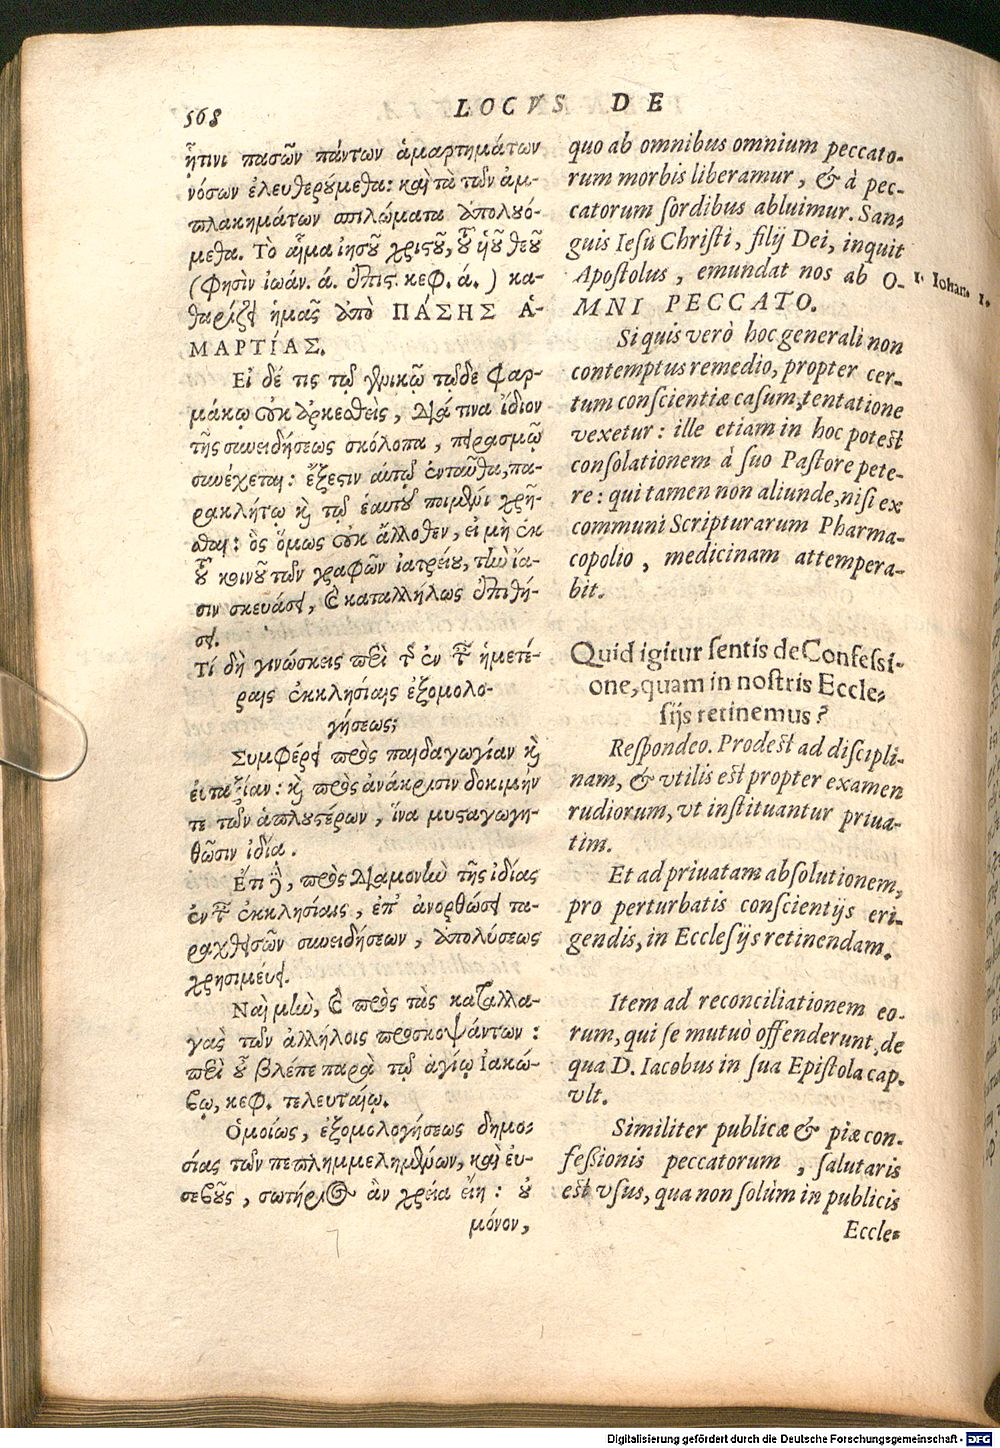 568
LOCVS DE
ᾗτινι πασῶν πάντων ἁμαρτημάτων
νόσων ἐλευθερούμεθα: καὶ τὰ τῶν ἀμ-
πλακημάτων σπιλώματα ἀπολυό-
μεθα. Τὸ αἷμα ἰησοῦ χριστοῦ, τοῦ ὑιοῦ θεοῦ
(φησὶν ἰωάν. ά. ἐπισ. κεφ. ά.) κα-
θαρίζει ἡμᾶς ἀπὸ ΠΑ΄ΣΗΣ Α῾-
ΜΑΡΤΙ΄ΑΣ.
Εἰ δέ τις τῷ γενικῷ τῷδε φαρ-
μάκῳ οὐκ ἀρκεσθεὶς, διά τινα ἴδιον
τῆς συνειδήσεως σκόλοπα, πειρασμῷ
συνέχεται: ἔξεστιν αὐτῷ ἐνταῦθα, πα-
ρακλήτῳ καὶ τῷ ἑαυτοῦ ποιμένι χρῆ-
σθαι: ὃς ὅμως οὐκ ἄλλοθεν, εἰ μὴ ἐκ
τοῦ κοινοῦ τῶν γραφῶν ἰατρείου, τὴν ἴα-
σιν σκευάσει, καὶ καταλλήλως ἐπιθή-
σει.
Τί δὴ γινώσκεις περὶ τῆς ἐν ταῖς ἡμετέ-
ραις ἐκκλησίαις ἐξομολο-
γήσεως;
Συμφέρει πρὸς παιδαγωγίαν καὶ
εὐταξίαν: καὶ πρὸς ἀνάκρισιν δοκιμήν
τε τῶν ἁπλουστέρων, ἵνα μυσταγωγη-
θῶσιν ἰδίᾳ.
Ἔτι δὲ, πρὸς διαμονὴν τῆς ἰδίας
ἐν ταῖς ἐκκλησίαις, ἐπ' ἀνορθώσει τα-
ραχθεισῶν συνειδήσεων, ἀπολύσεως
χρησιμεύει.
Ναὶ μὴν, καὶ πρὸς τὰς καταλλα-
γὰς τῶν ἀλλήλοις προσκοψάντων:
περὶ οὗ βλέπε παρὰ τῷ ἁγίῳ Ἰακώ-
βῳ, κεφ. τελευταίῳ.
Ὁμοίως, ἐξομολογήσεως δημο-
σίας τῶν πεπλημμελημένων, καὶ εὐ-
σεβοῦς, σωτήριος ἂν χρεία εἴη: οὐ
μόνον,
quo ab omnibus omnium peccato-
rum morbis liberamur, & à pec-
catorum sordibus abluimur. San-
guis Iesu Christi, filij Dei, inquit
Apostolus, emundat nos ab O-
MNI PECCATO.
1. Iohan. 1.
Si quis verò hoc generali non
contemptus remedio, propter cer-
tum conscientiæ casum, tentatione
vexetur: ille etiam in hoc potest
consolationem à suo Pastore pete-
re: qui tamen non aliunde, nisi ex
communi Scripturarum Pharma-
copolio, medicinam attempera-
bit.
Quid igitur sentis de Confessi-
one, quam in nostris Eccle-
sijs retinemus?
Respondeo. Prodest ad discipli-
nam, & vtilis est propter examen
rudiorum, vt instituantur priua-
tim.
Et ad priuatam absolutionem,
pro perturbatis conscientijs eri-
gendis, in Ecclesijs retinendam.
Item ad reconciliationem eo-
rum, qui se mutuò offenderunt, de
qua D. Iacobus in sua Epistola cap.
vlt.
Similiter publicæ & piæ con-
fessionis peccatorum, salutaris
est vsus, qua non solùm in publicis
Eccle-
Digitalisierung gefördert durch die Deutsche Forschungsgemeinschaft - DFG